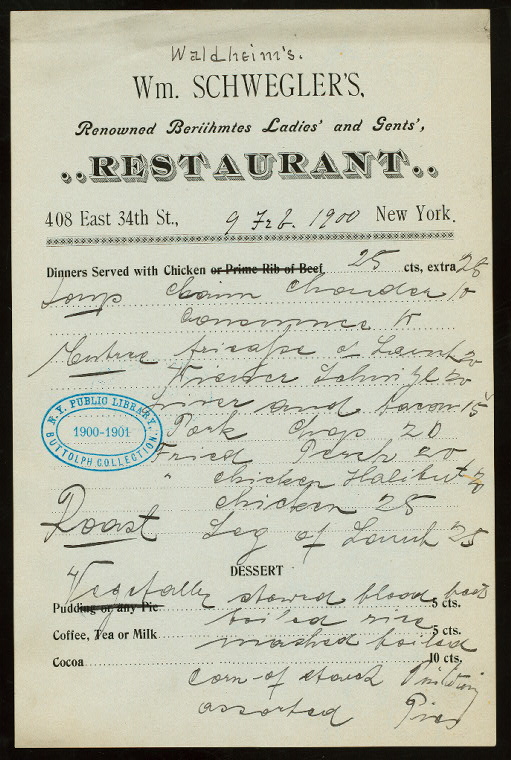 Waldheim's.
Wm. SCHWEGLER'S,
Renowned Beriihmtes Ladies' and Gents',
..RESTAURANT..
408 East 34th St., 9 Feb. 1900 New York.
Dinners Served with Chicken or Prime Rib of Beef 25 cts, extra 25
Soup Clam Chowder 10
Consummee
Entree fricasse of Lamb 20
Wiener Schnizl 20
Liver and bacon 15
Pork Chop 20
Fried Perch 20
" chicken Halibut 20
chicken 25
Roast Leg of Lamb 25
N.Y. PUBLIC LIBRARY
1900-1901
BUTTOLPH COLLECTION.
DESSERT
Vegetably stewed blood beets
Pudding or any Pie 5 cts.
boiled rice
Coffee, Tea or Milk 5 cts.
mashed boiled
Cocoa 10 cts.
corn of starch Pudding
assorted Pies